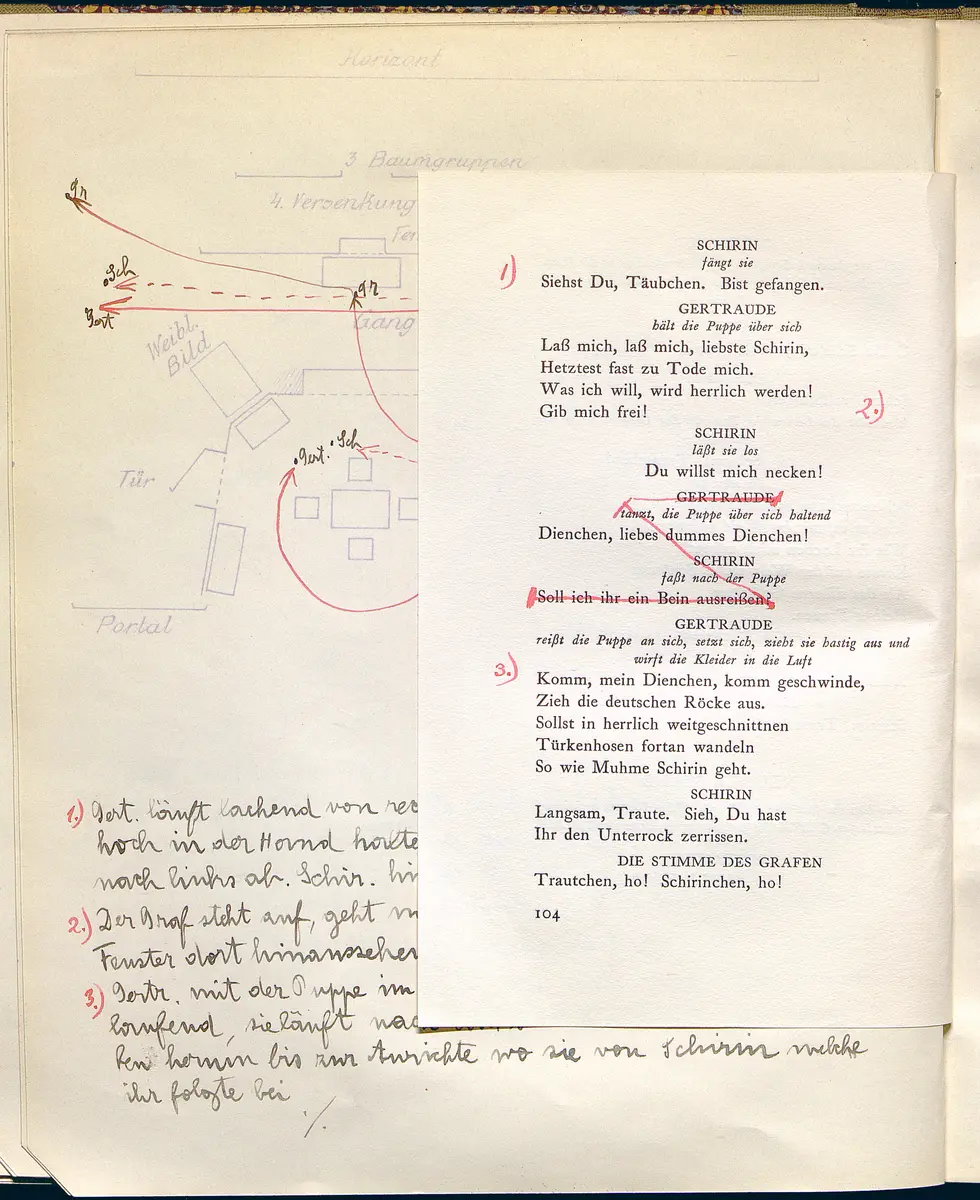 Horizont
3 Baumgruppen
4. Versenkung
gr
Fen
Sch
gr
Gert
Gang
Weibl.
Bild
Gert. Sch
Tür
Portal
1.) Gert. läuft lachend von rec
hoch in der Hand halte
nach links ab. Schir. hin
2.) Der Graf steht auf, geht
Fenster dort hinaussehen
3.) Gertr. mit der Puppe im
laufend, sie läuft nac
ken herum bis zur Anrichte wo sie von Schirin welche
ihr folgte bei
./.
SCHIRIN
fängt sie
1) Siehst Du, Täubchen. Bist gefangen.
GERTRAUDE
hält die Puppe über sich
Laß mich, laß mich, liebste Schirin,
Hetztest fast zu Tode mich.
Was ich will, wird herrlich werden!
Gib mich frei! 2.)
SCHIRIN
läßt sie los
Du willst mich necken!
GERTRAUDE
tanzt, die Puppe über sich haltend
Dienchen, liebes dummes Dienchen!
SCHIRIN
faßt nach der Puppe
Soll ich ihr ein Bein ausreißen?
GERTRAUDE
reißt die Puppe an sich, setzt sich, zieht sie hastig aus und
wirft die Kleider in die Luft
3.) Komm, mein Dienchen, komm geschwinde,
Zieh die deutschen Röcke aus.
Sollst in herrlich weitgeschnittnen
Türkenhosen fortan wandeln
So wie Muhme Schirin geht.
SCHIRIN
Langsam, Traute. Sieh, Du hast
Ihr den Unterrock zerrissen.
DIE STIMME DES GRAFEN
Trautchen, ho! Schirinchen, ho!
104